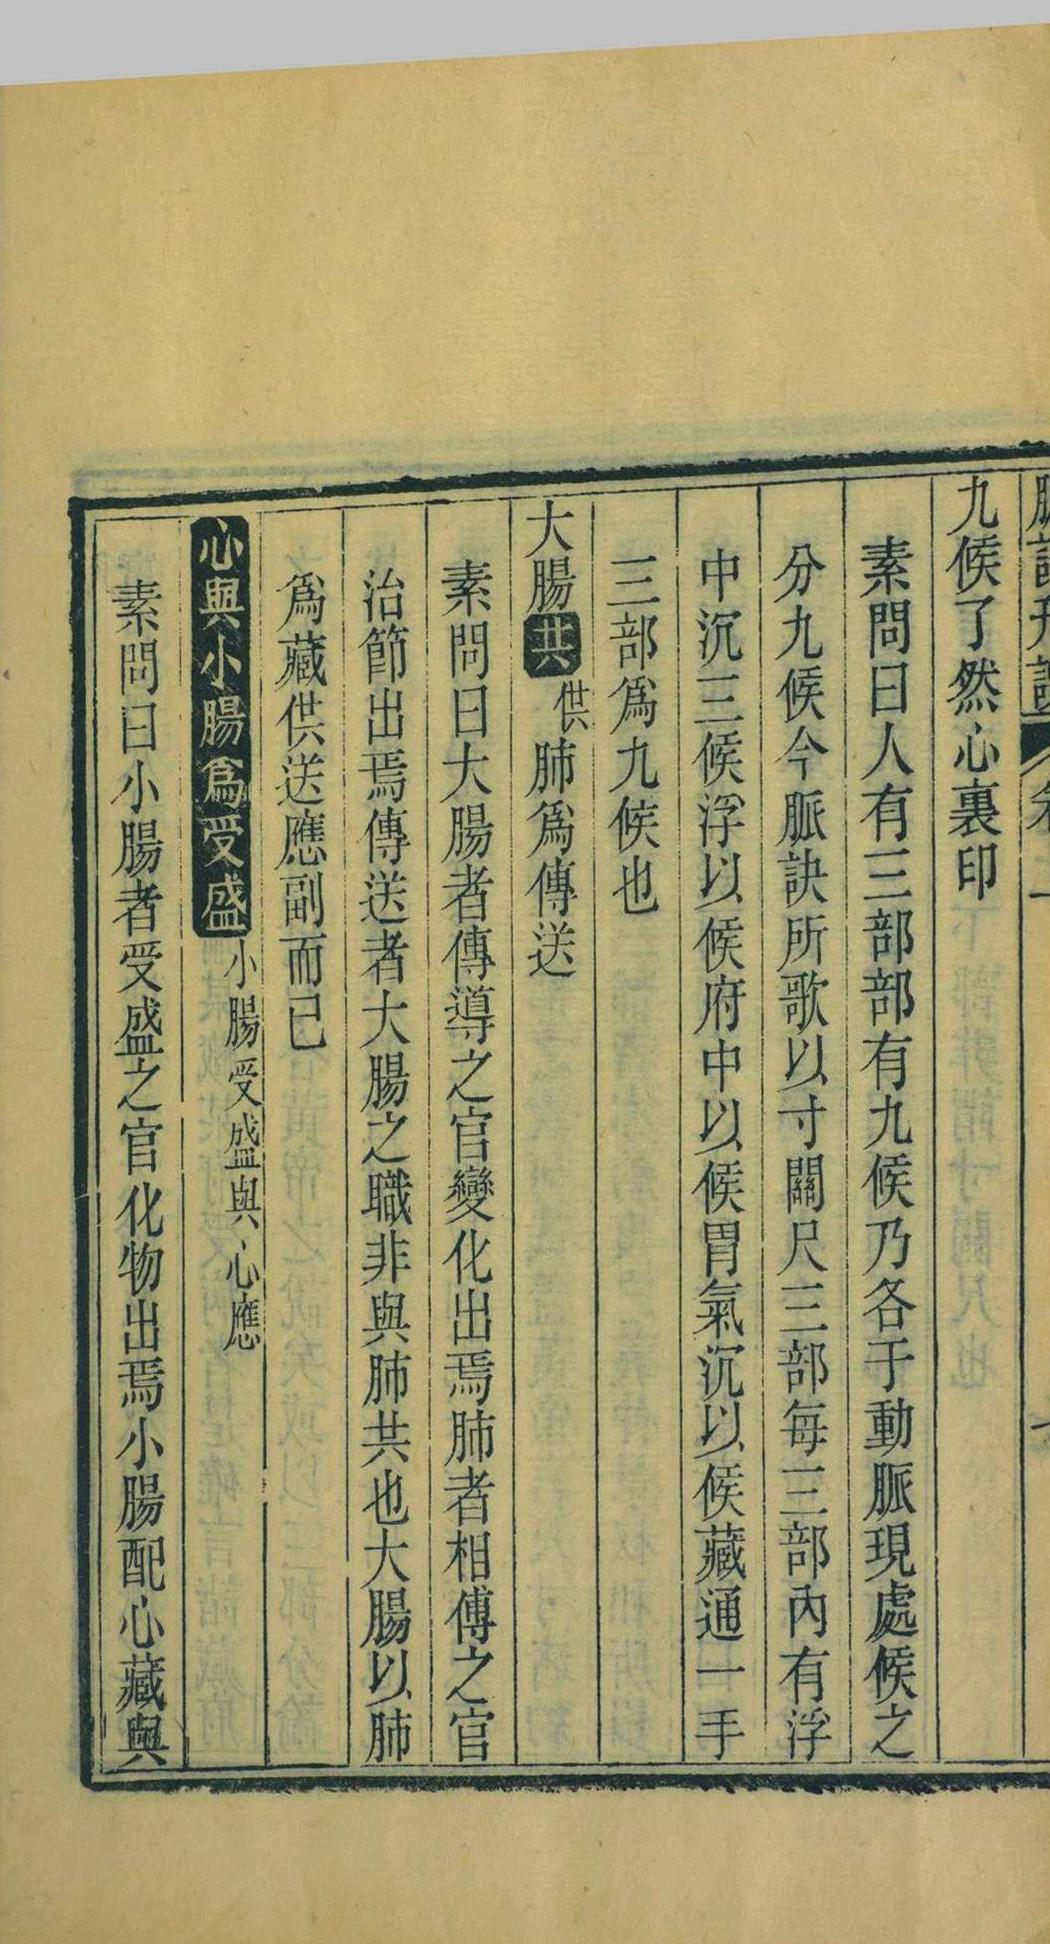 九候了然心裏印
素問曰人有三部部有九候乃各于動脈現處候之
分九候今脈訣所歌以寸關尺三部每三部內有浮
中沉三候浮以候府中以候胃氣沉以候藏通一手
三部爲九候也
大腸共供肺爲傳送
素問曰大腸者傳導之官變化出焉肺者相傅之官
治節出焉傳送者大腸之職非與肺共也大腸以肺
爲藏供送應副而已
心與小腸爲受盛小腸受盛與心應
素問曰小腸者受盛之官化物出焉小腸配心藏與